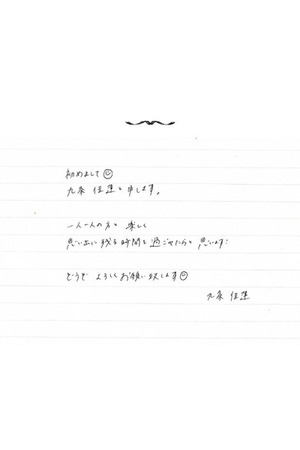 初めまして☺
九条 佳蓮と申します。
一人一人の方と 楽しく
思い出に残る時間を過ごせたらと 思います!
どうぞ よろしくお願い致します☺
九条 佳蓮